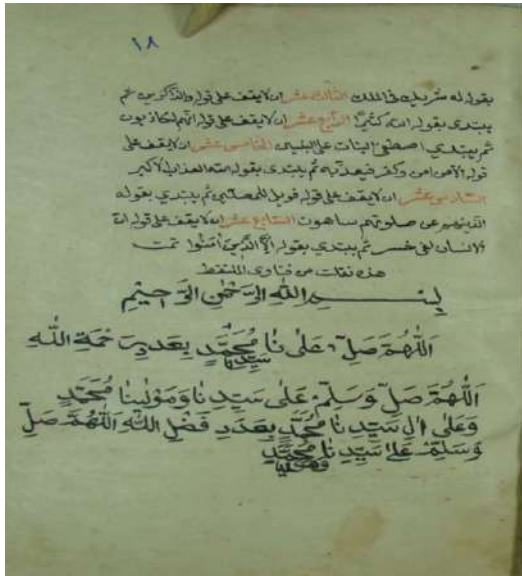 ١٨
بقوله له شريك في الملك الثالث عشر ان لا يقف على قوله والذاكرين ثم
يبتدى بقوله الله كثيرًا الرابع عشر ان لا يقف على قوله انهم لكاذبون
ثم يبتدي اصطفى البنات على البنين الخامس عشر ان لا يقف على
قوله الا من تولى وكفر فيعذبه ثم يبتدى بقوله الله العذاب الاكبر
السادس عشر ان لا يقف على قوله فويل للمصلين ثم يبتدي بقوله
الذين هم عن صلوتهم ساهون السابع عشر ان لا يقف على قوله ان
الانسان لفى خسر ثم يبتدي بقوله الا الذين امنوا تمت
هذه نقلت من فتاوى الملتقط
بسم الله الرحمن الرحيم
اللهم صل على سيدنا محمد بعدد رحمة الله
اللهم صل وسلم على سيدنا ومولينا محمد
وعلى ال سيدنا محمد بعدد فضل الله اللهم صل
وسلم على سيدنا محمد